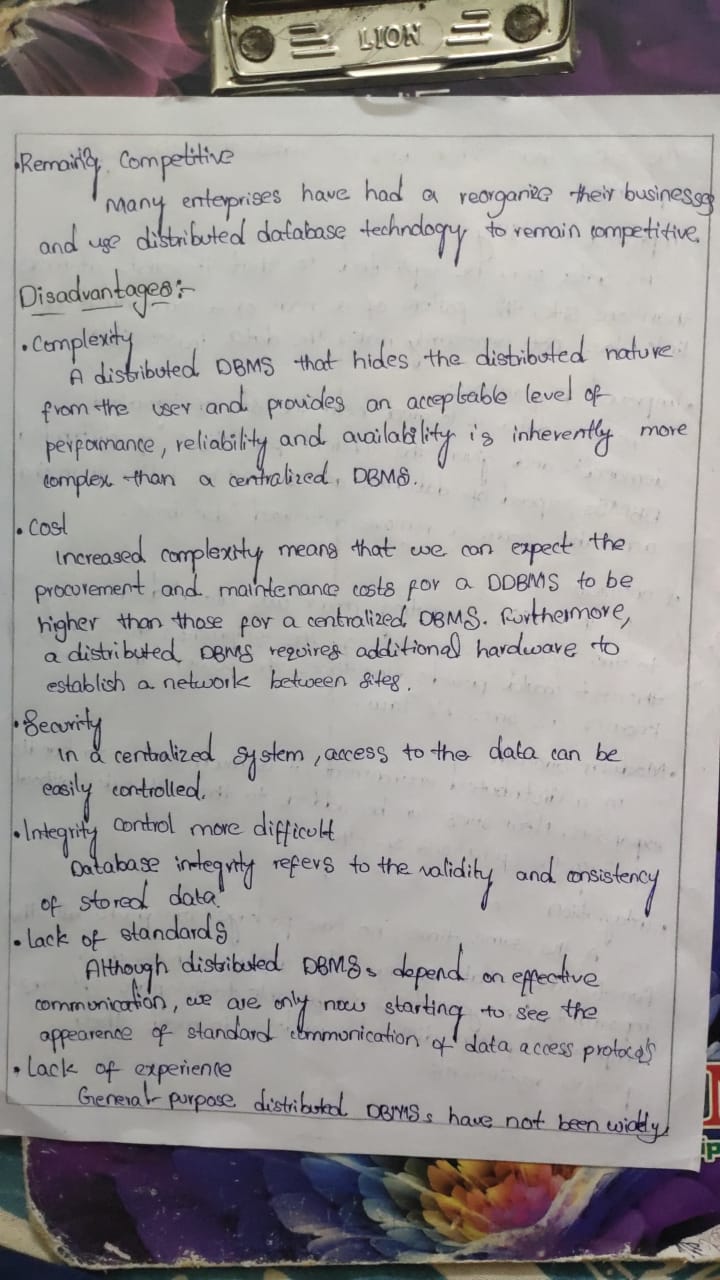 LION
•Remaing Competitive
Many enterprises have had a reorganize their businesses
and use distributed database technology to remain competitive.
Disadvantages:-
•Complexity
A distributed DBMS that hides the distributed nature
from the user and provides an acceptable level of
performance, reliability and availability is inherently more
complex than a centralized, DBMS.
•Cost
Increased complexity means that we can expect the
procurement and maintenance costs for a DDBMS to be
higher than those for a centralized DBMS. Furthermore,
a distributed DBMS requires additional hardware to
establish a network between sites.
•Security
In a centralized system, access to the data can be
easily controlled.
•Integrity control more difficult
Database integrity refers to the validity and consistency
of stored data.
•Lack of standards
Although distributed DBMSs depend on effective
communication, we are only now starting to see the
appearence of standard communication of data access protocols
•Lack of experience
General-purpose distributed DBMSs have not been widely